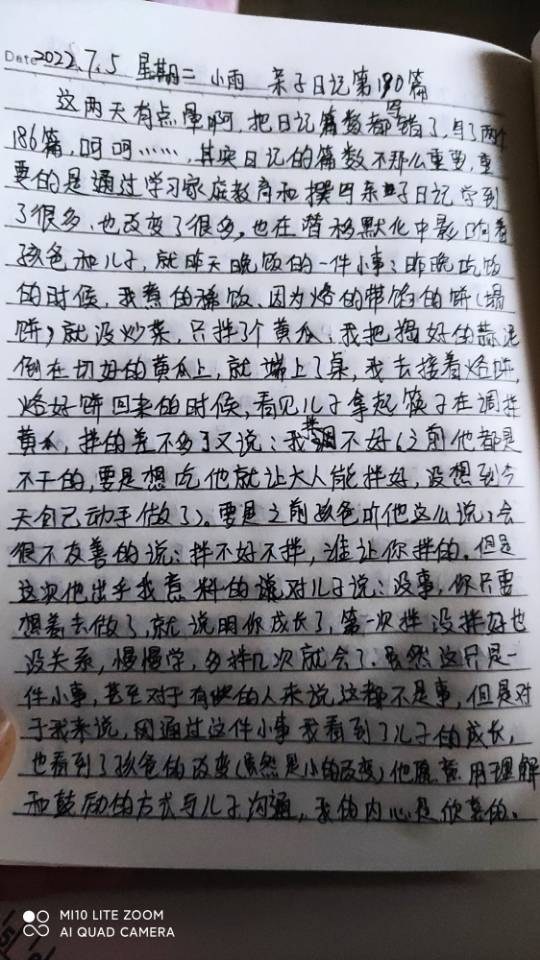 Date 2022.7.5 星期二 小雨 亲子日记第190篇
这两天有点晕啊,把日记篇数都写错了,写了两个
186篇,呵呵……,其实日记的篇数不那么重要,重
要的是通过学习家庭教育和撰写亲子日记学到
了很多,也改变了很多,也在潜移默化中影响着
孩爸和儿子,就昨天晚饭的一件小事;昨晚吃饭
的时候,我煮的稀饭、因为烙的带馅的饼(塌
饼)就没炒菜,只拌了个黄瓜;我把捣好的蒜泥
倒在切好的黄瓜上,就端上了桌,我去接着烙饼,
烙好饼回来的时候,看见儿子拿起筷子在调拌
黄瓜,拌的差不多了又说:我拌不好(之前他都是
不干的,要是想吃他就让大人能拌好,没想到今
天自己动手做了)。要是之前孩爸听他这么说,会
很不友善的说:拌不好不拌,谁让你拌的。但是
这次他出乎我意料的对儿子说:没事,你只要
想着去做了,就说明你成长了,第一次拌没拌好也
没关系,慢慢学,多拌几次就会了。虽然这只是一
件小事,甚至对于有些的人来说这都不是事,但是对
于我来说,通过这件小事我看到了儿子的成长,
也看到了孩爸的改变(虽然是小的改变)他愿意用理解
和鼓励的方式与儿子沟通,我的内心是欣喜的。
MI10 LITE ZOOM
AI QUAD CAMERA